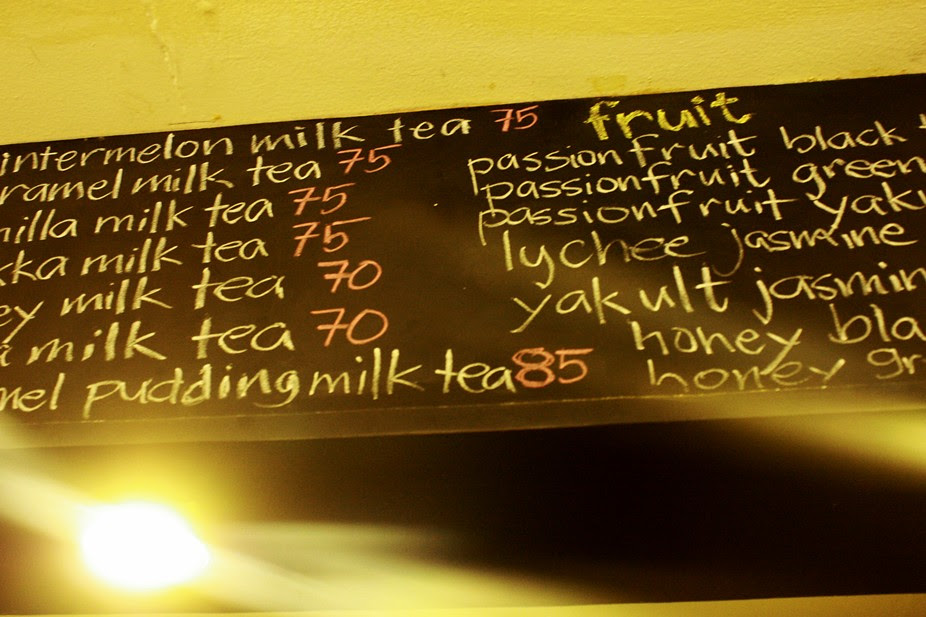 intermelon milk tea 75
ramel milk tea 75
nilla milk tea 75
kka milk tea 75
ey milk tea 70
a milk tea 70
mel pudding milk tea 85
fruit
passionfruit black t
passionfruit green
passionfruit yaku
lychee jasmine
yakult jasmin
honey bla
honey gr